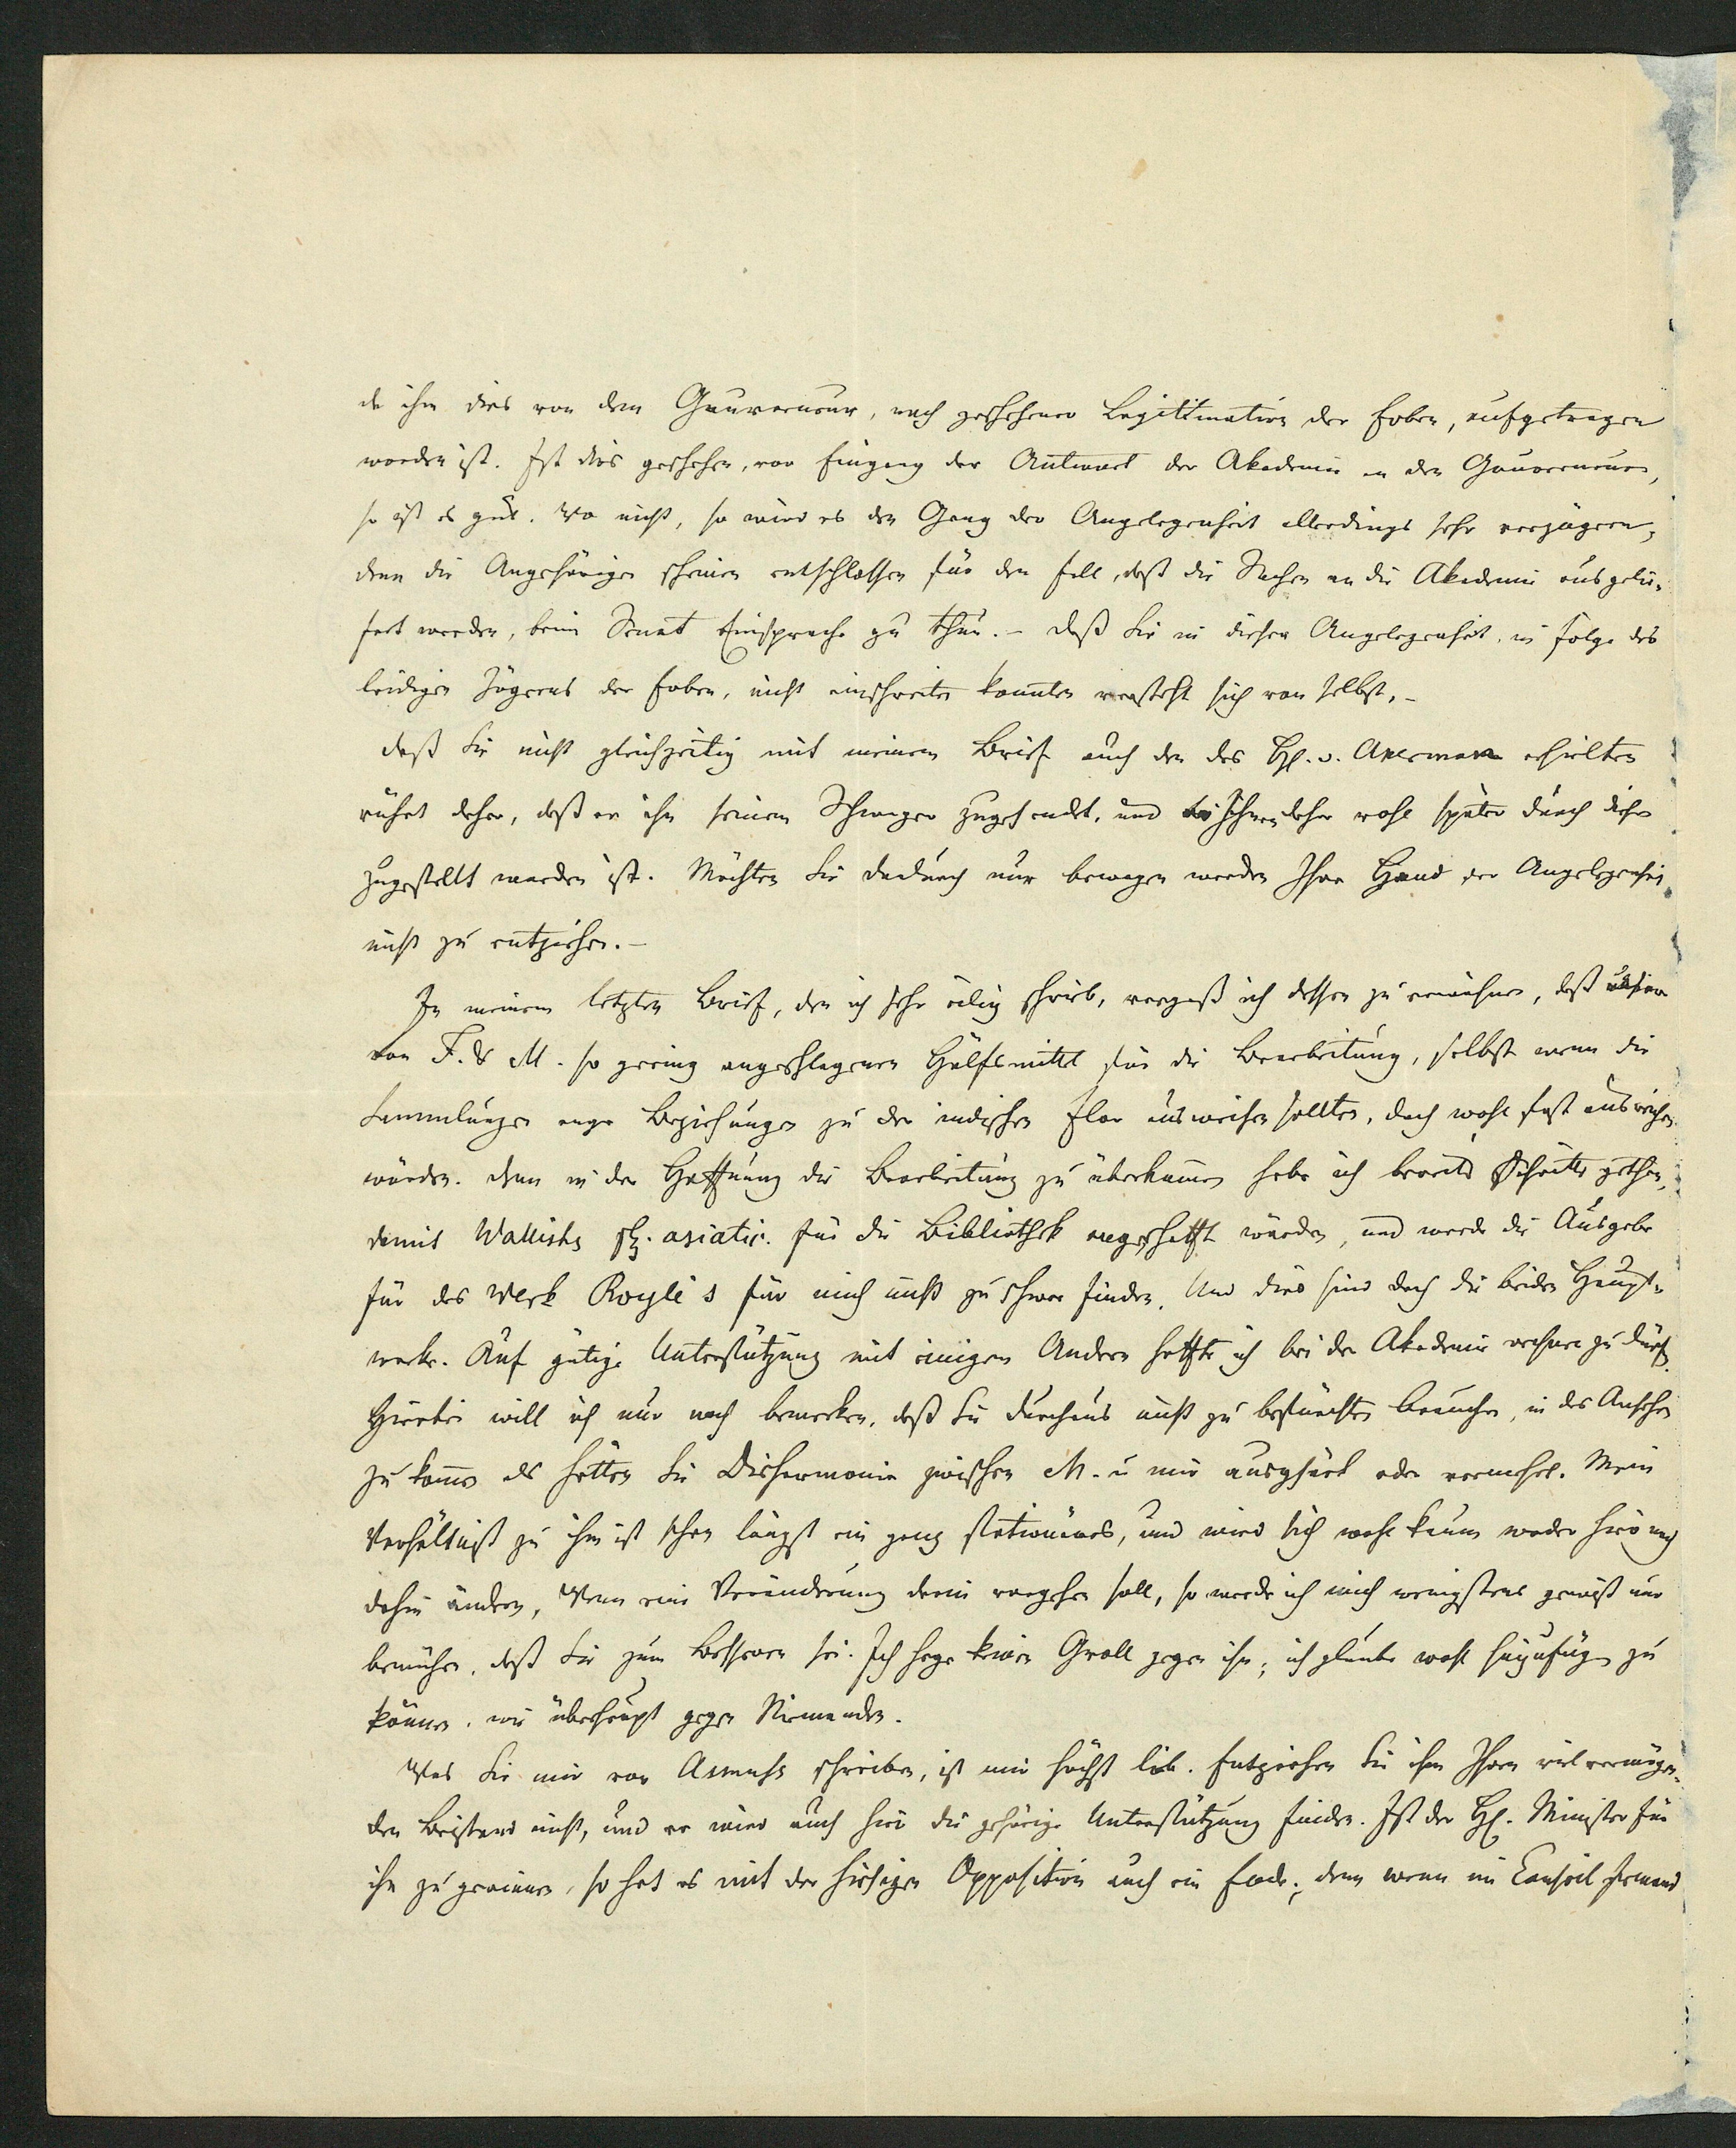 da ihm dies von dem Gouverneur, nach geschehener Legitimation der Erben, aufgetragen
worden ist. Ist dies geschehen, vor Eingang der Antwort der Akademie an den Gouverneur,
so ist es gut. Wo nicht, so wird es den Gang der Angelegenheit allerdings sehr verzögern,
denn die Angehörigen scheinen entschlossen für den Fall, daß die Sachen an die Akademie ausgelie-
fert werden, beim Senat Einsprache zu thun. – Daß Sie in dieser Angelegenheit, in Folge des
leidigen Zögerns der Erben, nicht einschreiten konnten versteht sich von selbst. –
Daß Sie nicht gleichzeitig mit meinem Brief auch den des H. v. Akerman erhielten
rührt daher, daß er ihn seinem Schwager zugesendet, und Ihnen daher wohl später durch diesen
zugestellt worden ist. Möchten Sie dadurch nur bewogen werden Ihre Hand der Angelegenheit
nicht zu entziehen. –
In meinem letzten Brief, den ich sehr eilig schrieb, vergaß ich dessen zu erwähnen, daß unsere
von F. & M. so gering angeschlagenen Hülfsmittel für die Bearbeitung, selbst wenn die
Sammlungen enge Beziehungen zu der indischen Flor ausweisen sollten, doch wohl fast ausreichen
würden. Denn in der Hoffnung die Bearbeitung zu überkommen habe ich bereits Schritte gethan,
damit Wallichs pl. asiatic. für die Bibliothek angeschafft würden, und werde die Ausgabe
für das Werk Royle's für mich nicht zu schwer finden. Und dies sind doch die beiden Haupt-
werke. Auf gütige Unterstützung mit einigen Andern hoffte ich bei der Akademie rechnen zu dürfen.
Hierbei will ich nur noch bemerken, daß Sie durchaus nicht zu befürchten brauchen, in das Ansehen
zu kommen als hätten Sie Disharmonie zwischen M. u mir ausgesäet oder vermehrt. Mein
Verhältniß zu ihm ist schon längst ein ganz stationäres, und wird sich wohl kaum weder hier noch
dahin ändern. Wenn eine Veränderung darin vorgehen soll, so werde ich mich wenigstens gewiß nur
bemühen, daß sie zum Besseren sei. Ich hege keinen Groll gegen ihn; ich glaube wohl hinzufügen zu
können, wie überhaupt gegen Niemanden.
Was Sie mir von Asmuss schreiben, ist mir höchst lieb. Entziehen Sie ihm Ihren vielvermögen-
den Beistand nicht, und er wird auch hier die gehörige Unterstützung finden. Ist der H. Minister für
ihn zu gewinnen, so hat es mit der hiesigen Opposition auch ein Ende; denn wenn im Conseil Jemand